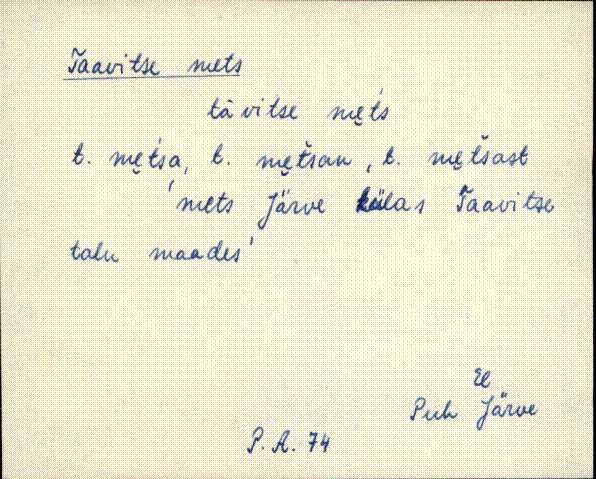 Taavitse mets
tāvitse męt́s
t. męt́sa, t. mętšan, t. mętšast
'mets Järve külas Taavitse
talu maades'
El
Puh Järve
P. A. 74